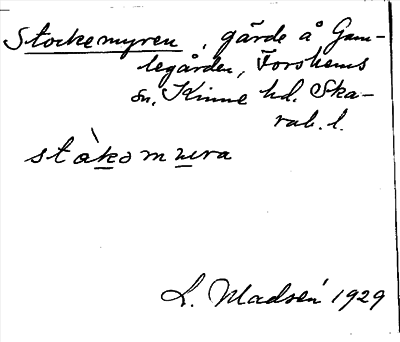 Stockemyren, gärde å Gam-
legården, Forshems
sn, Kinne hd. Ska-
rab. l.
stàkomura
L. Madsén 1929